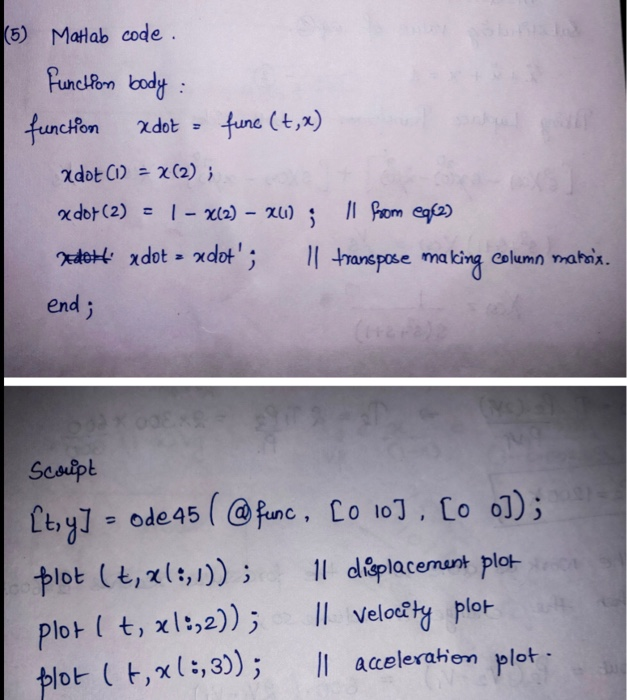 (5) Matlab code.
Function body :
function xdot = func (t,x)
xdot(1) = x(2) ;
xdot(2) = 1 - x(2) - x(1) ; // from eq(2)
xdot = xdot' ; // transpose making column matrix.
end ;
Script
[t,y] = ode45 ( @func , [0 10] , [0 0]) ;
plot (t, x(:,1)) ; // displacement plot
plot ( t, x(:,2)) ; // velocity plot
plot ( t, x(:,3)) ; // acceleration plot.